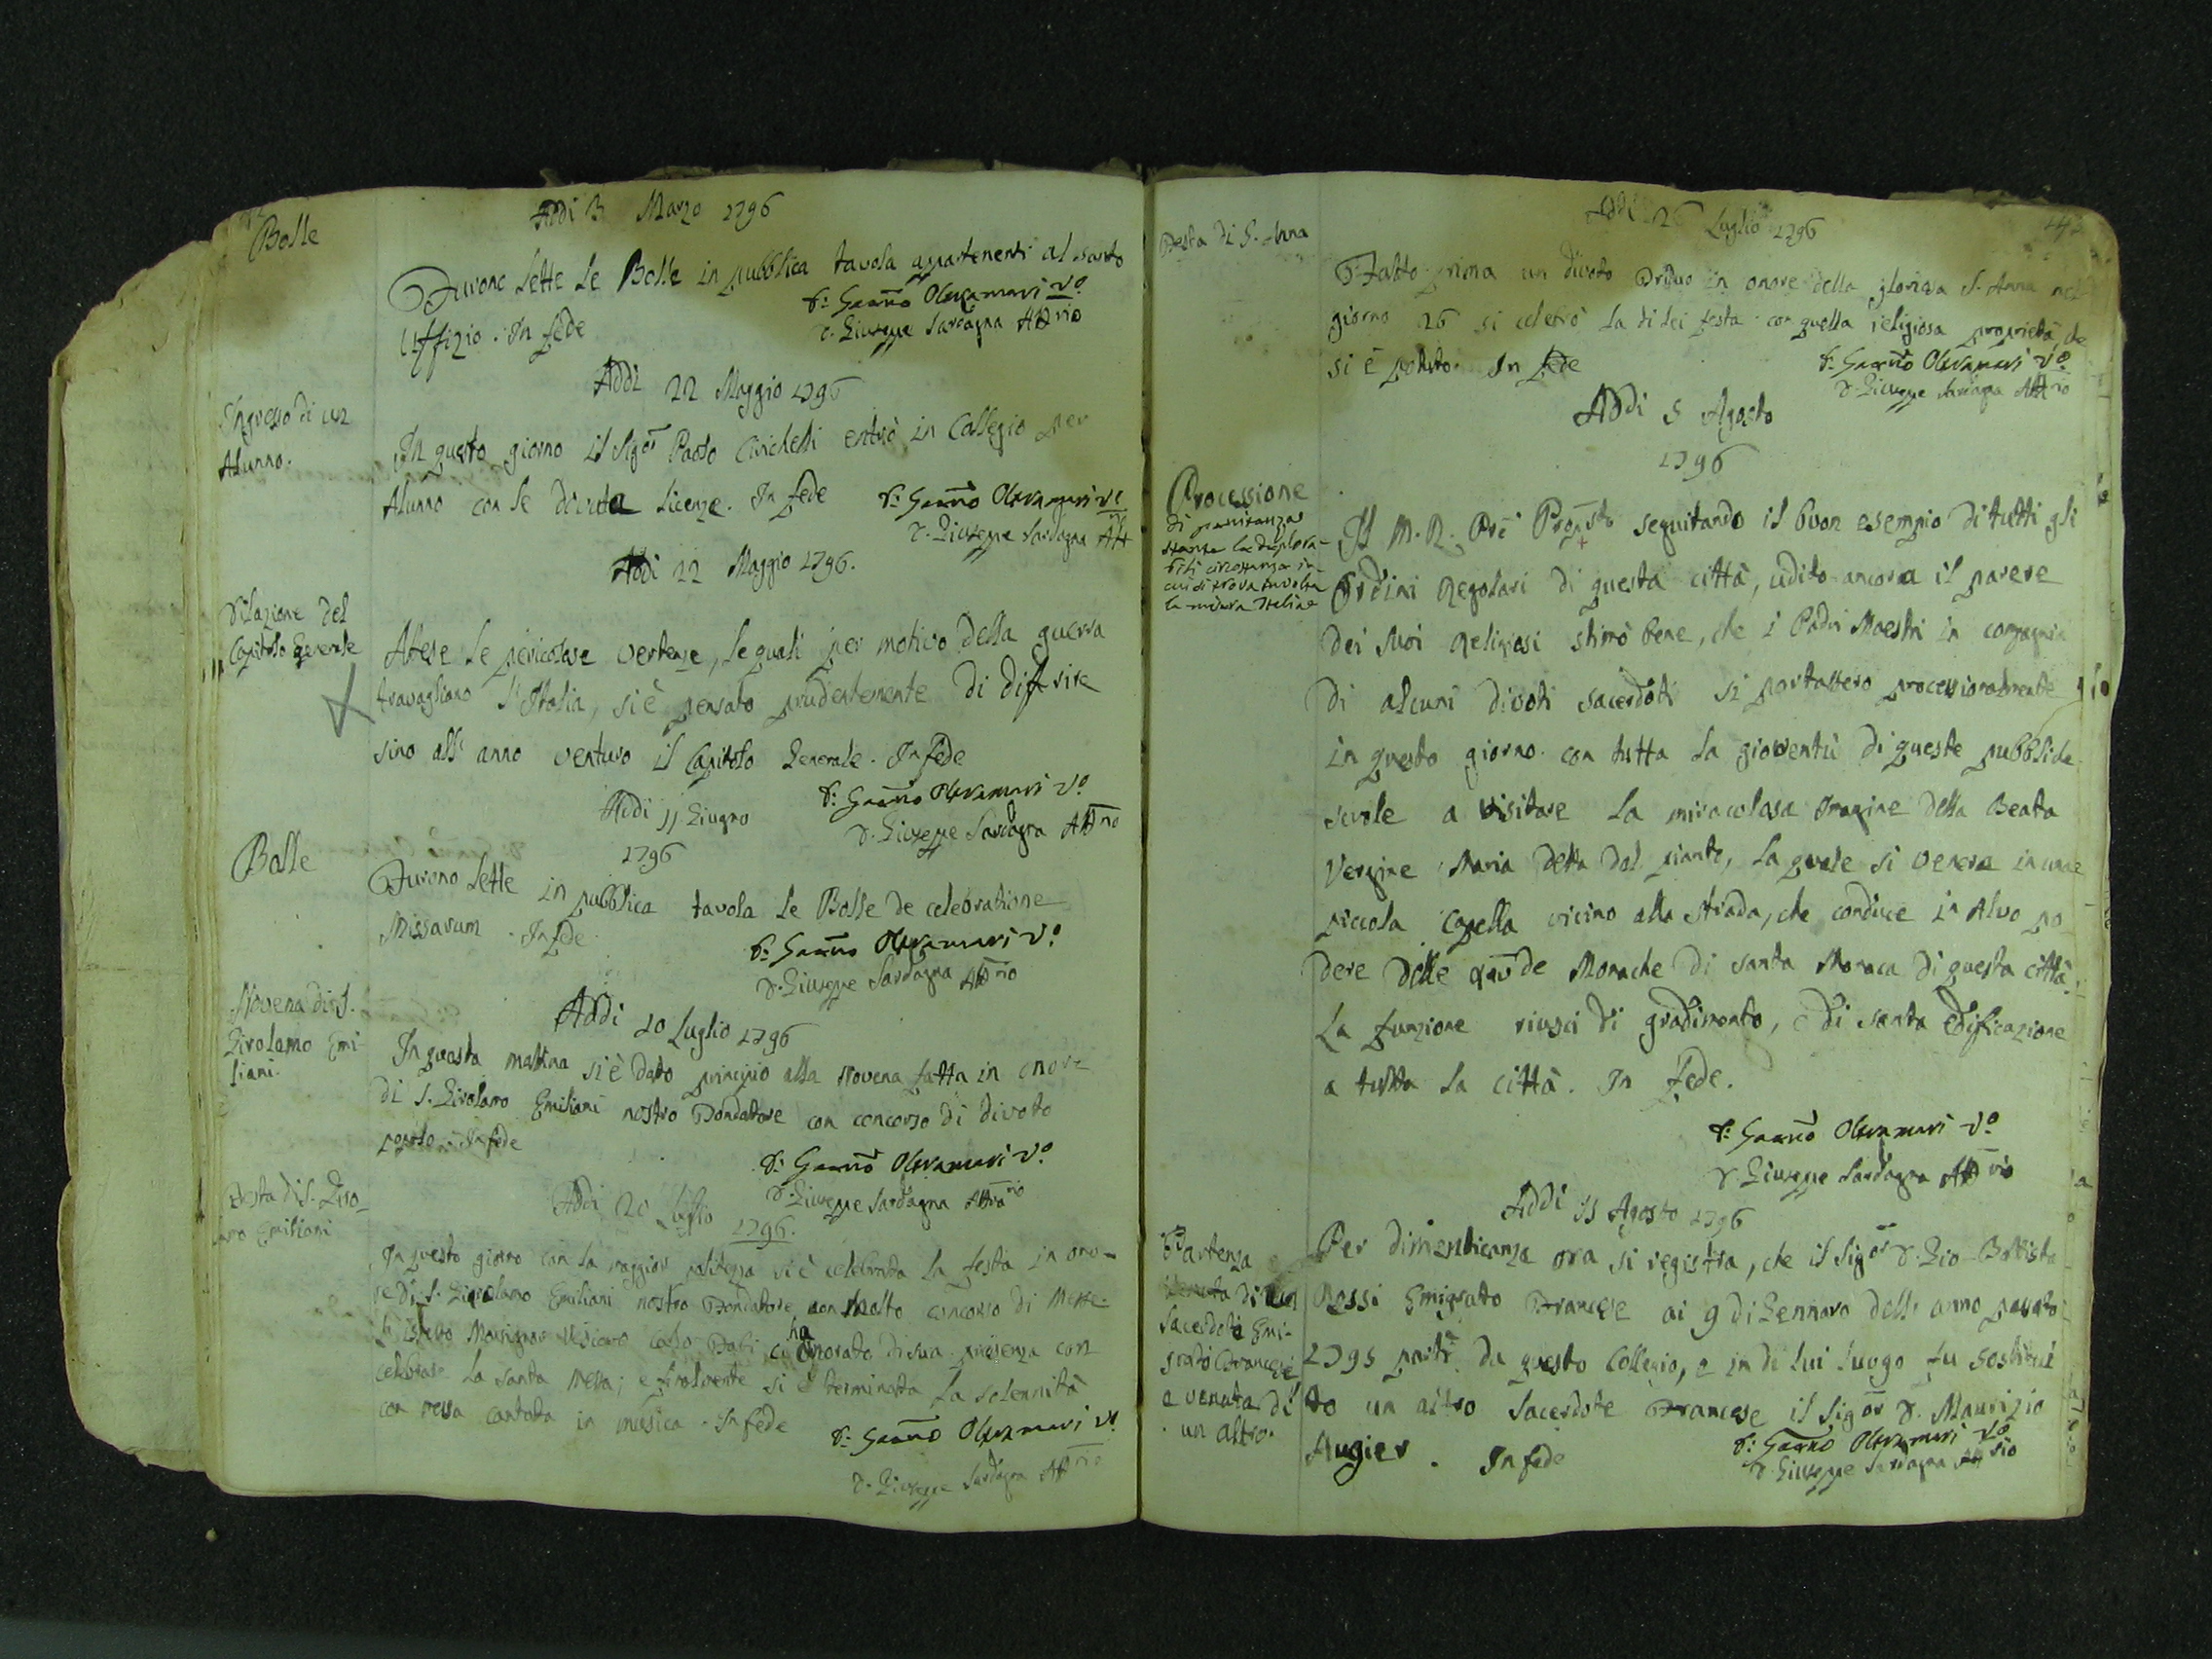 Bolle
Addi 3 Marzo 1796
Furono lette le Bolle in pubblica tavola appartenenti al santo
Uffizio. In fede
D. Giuseppe Sardagna Attrio
Ingresso di un
Alunno.
Addi 22 Maggio 1796
In questo giorno il Sigor Paolo entrò in Collegio per
Alunno con le dovute licenze. In fede
D. Giuseppe Sardagna Att
Addi 22 Maggio 1796.
Dilazione del
Capitolo Generale
Atese le pericolose vertenze, le quali per motivo della guerra
travagliano l'Italia, si è pensato prudentemente di differire
sino all' anno venturo il Capitolo Generale. In fede
Addi 11 Giugno
1796
D. Giuseppe Sardagna Attrio
Bolle
Furono lette in pubblica tavola le Bolle de celebratione
Missarum. In fede.
D. Giuseppe Sardagna Attrio
Novena di S.
Girolamo Emi-
liani.
Addi 10 Luglio 1796
In questa mattina si è dato principio alla Novena fatta in onore
di S. Girolamo Emiliani nostro Fondatore con concorso di divoto
popolo. In fede
D. Giuseppe Sardagna Attrio
Festa di S. Giro-
lamo Emiliani
Addi 20 Luglio
1796.
In questo giorno con la maggior pulitezza si è celebrata la festa in ono-
re di S. Girolamo Emiliani nostro Fondatore con molto concorso di Messe.
Monsignor Vescovo ha onorato di sua presenza con
celebrare la santa Messa; e finalmente si è terminata la solennità
con messa cantata in musica. In fede
D. Giuseppe Sardagna Attrio
Festa di S. Anna
Addi 26 Luglio 1796
Fatto prima un divoto Triduo in onore della gloriosa S. Anna nel
giorno 26 si celebrò la di lei festa con quella religiosa proprietà, che
si è potuto. In fede
D. Giuseppe Sardagna Attrio
Addi 5 Agosto
1796
Processione
di penitenza
stante le deplora-
bili circostanze in
cui si trova
la misera Italia
Il M. R. Pre Propsto seguitando il buon esempio di tutti gli
Ordini Regolari di questa città, udito ancora il parere
dei suoi Religiosi stimò bene, che i Padri Maestri in compagnia
di alcuni divoti sacerdoti si portassero processionalmente
in questo giorno con tutta la gioventù di queste pubbliche
scuole a visitare la miracolosa Imagine della Beata
Vergine Maria detta del pianto, la quale si venera in una
piccola Capella vicino alla strada, che conduce in Alvo po
dere delle Monache di santa Monaca di questa città.
La funzione riuscì di gradimento, e di santa edificazione
a tutta la città. In fede.
D. Giuseppe Sardagna Attrio
Addi 11 Agosto 1796
Partenza
di un
Sacerdote Emi-
grato Francese
e venuta di
un altro.
Per dimenticanza ora si registra, che il Sigor D. Gio Battista
Rossi Emigrato Francese ai 9 di Gennaro dell' anno passato
1795 partì da questo Collegio, e in di lui luogo fu sostitui
to un altro Sacerdote Francese il Sigor D. Maurizio
Augier. In fede
D. Giuseppe Sardagna Attrio